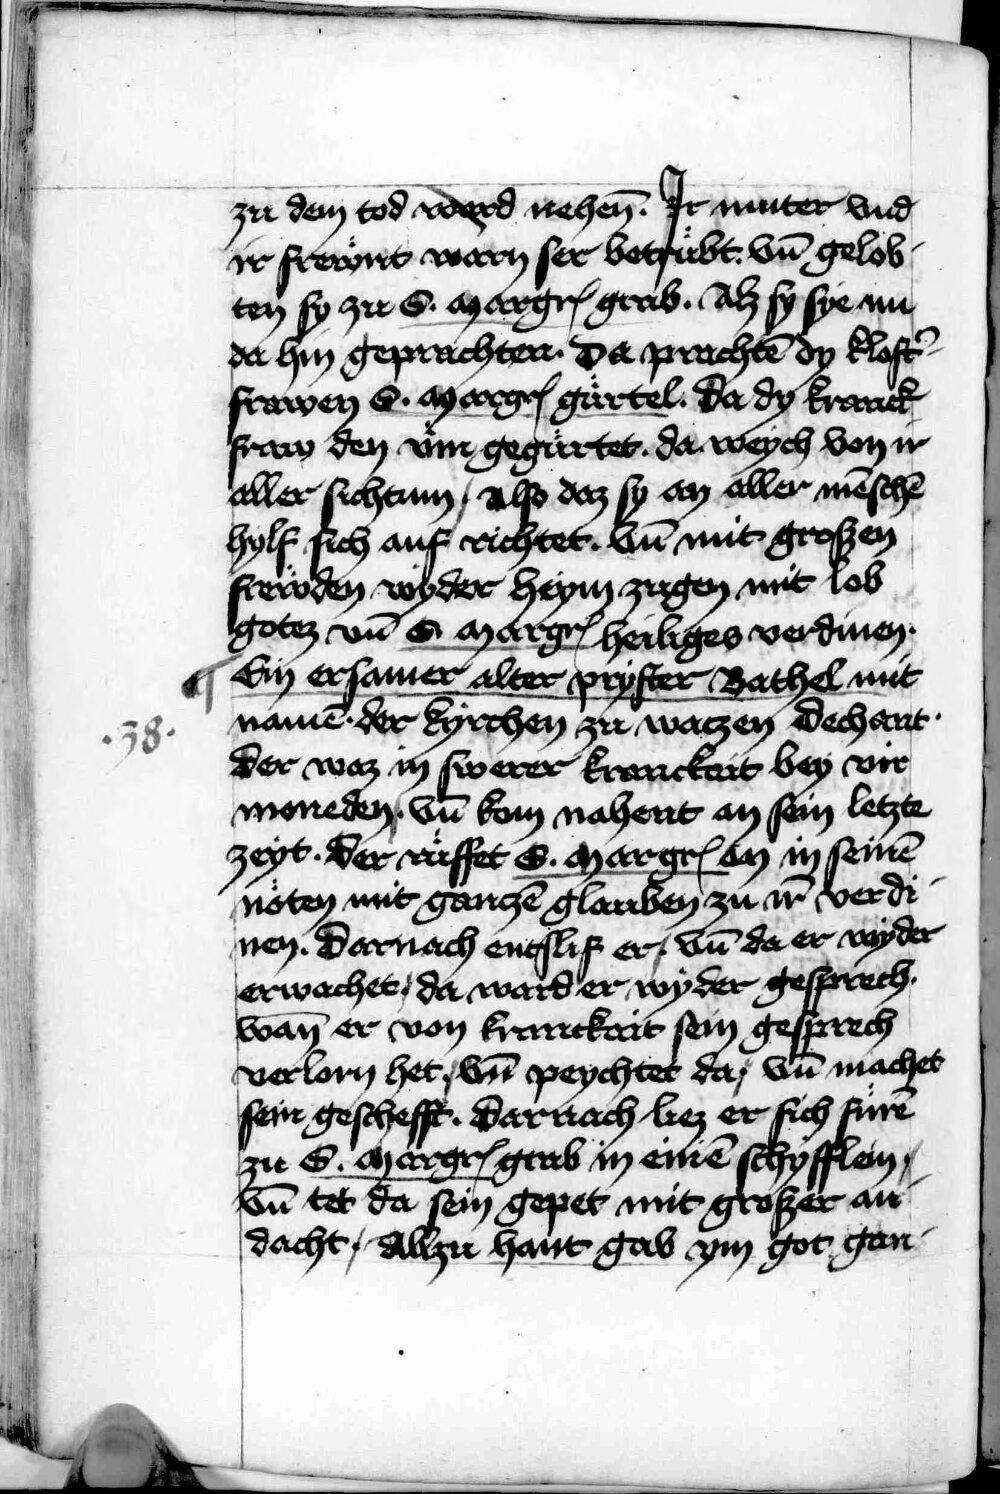 zu dem tod ward nehen̄. Ir muter vnd
ir frewnt warn ser betrübt. vn̄ gelob
ten sy zu S. margr̄ grab. Alz sy sye nu
da hin geprachten. Da prachtē dy klost̄
frawen S. margr̄ gürtel. Da dy kranck
fraw den vm gegürtet. da weych von ir
aller sichtum / Also daz sy an aller mēschē
hylf sich auf richtet. vn̄ mit groszen
frewden wyder heym zugen mit lob
gotez vn̄ S. margr̄ heiliges verdinen.
¶ Ein ersamer alter pryster Bathel mit
.38.
namē. der kyrchen zu watzen Dechant.
Der waz in swerer kranckait bey vir
moneden / vn̄ kom nahent an sein letzte
zeyt. Der rüffet S. margr̄ an in seinē
nöten mit ganczē glauben zu ir̄ verdi
nen. Darnach entslif er / vn̄ da er wyder
erwachet / da ward er wyder gesprech.
wan̄ er von kranckait sein gesprech
verlorn het / vn̄ peychtet da / vn̄ machet
sein gescheft. Darnach liez er sich fürē
zu S. margr̄ grab in einē schyfflein /
vn̄ tet da sein gepet mit groszer an
dacht / Allzu hant gab ym got gan